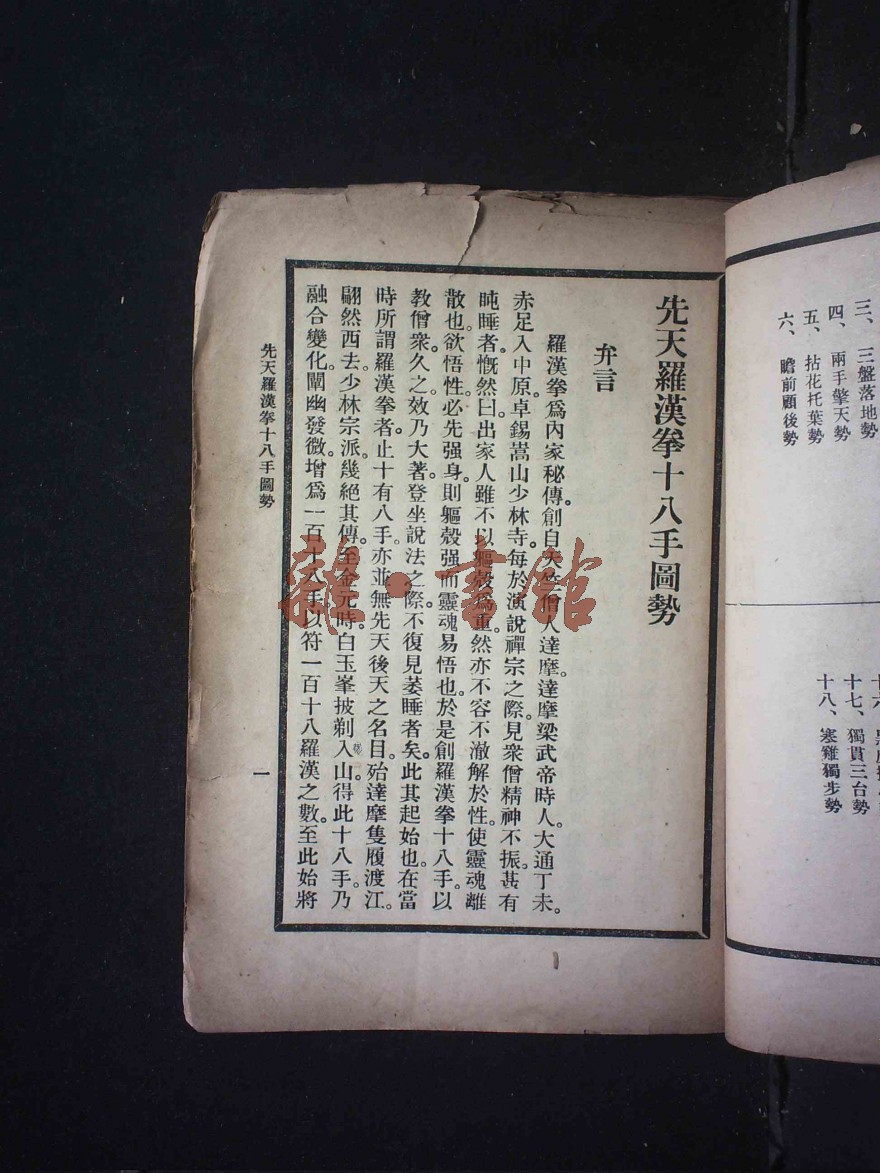 三、三盤落地勢
四、兩手擎天勢
五、拈花托葉勢
六、瞻前顧後勢
十七、獨貫三台勢
十八、寒雞獨步勢
先天羅漢拳十八手圖勢
弁言
羅漢拳爲內家秘傳。創自天竺僧人達摩。達摩梁武帝時人。大通丁未。
赤足入中原。卓錫嵩山少林寺。每於演說禪宗之際。見衆僧精神不振。甚有
盹睡者。慨然曰。出家人雖不以軀殼爲重。然亦不容不澈解於性。使靈魂離
散也。欲悟性。必先强身。則軀殼强而靈魂易悟也。於是創羅漢拳十八手。以
教僧衆。久之。效乃大著。登坐說法之際。不復見萎睡者矣。此其起始也。在當
時所謂羅漢拳者。止十有八手。亦並無先天後天之名目。殆達摩隻履渡江。
翩然西去。少林宗派。幾絕其傳。至金元時。白玉峯披剃入山。得此十八手。乃
融合變化。闡幽發微。增爲一百十八手。以符一百十八羅漢之數。至此始將
先天羅漢拳十八手圖勢
一
雜·書館